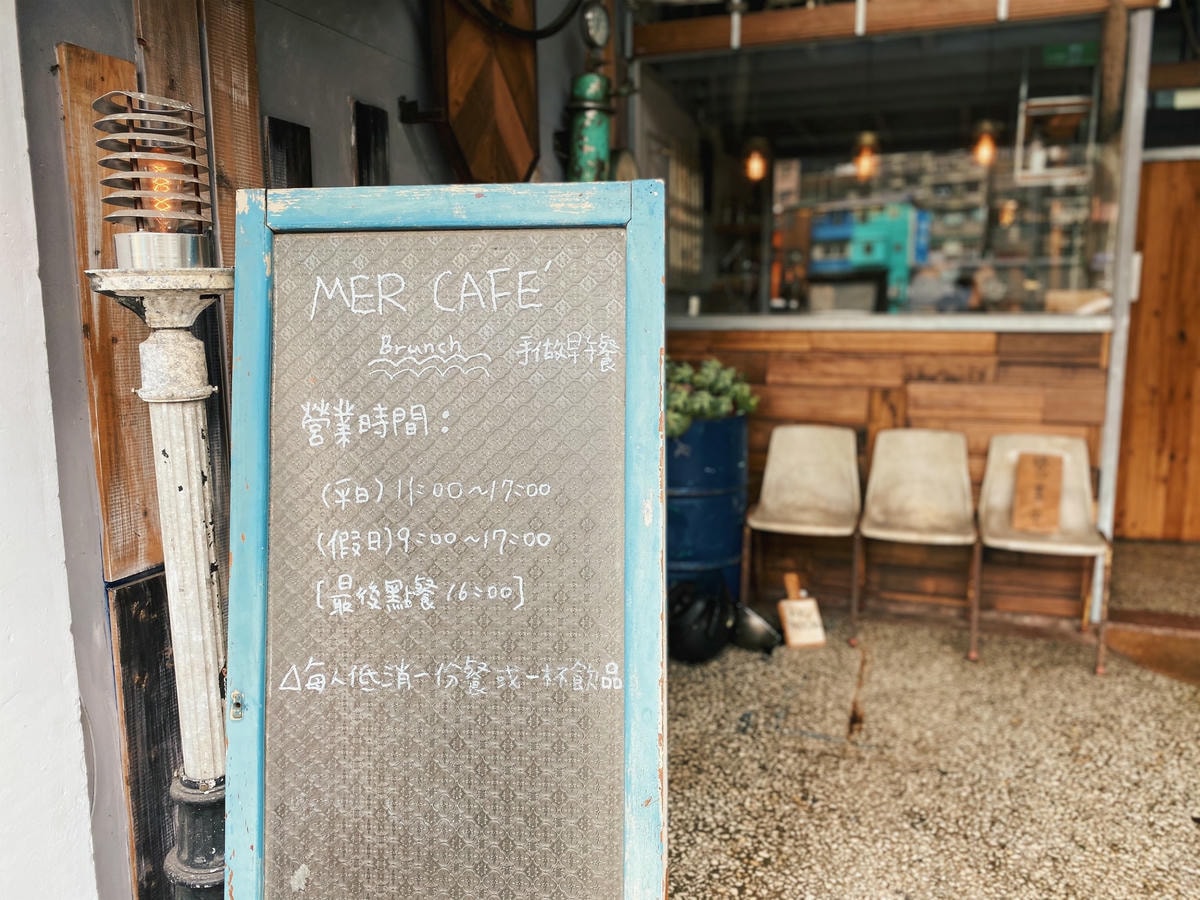 MER CAFÉ
Brunch 手做早午餐
營業時間：
(平日) 11:00～17:00
(假日) 9:00～17:00
[最後點餐 16:00]
△每人低消一份餐或一杯飲品